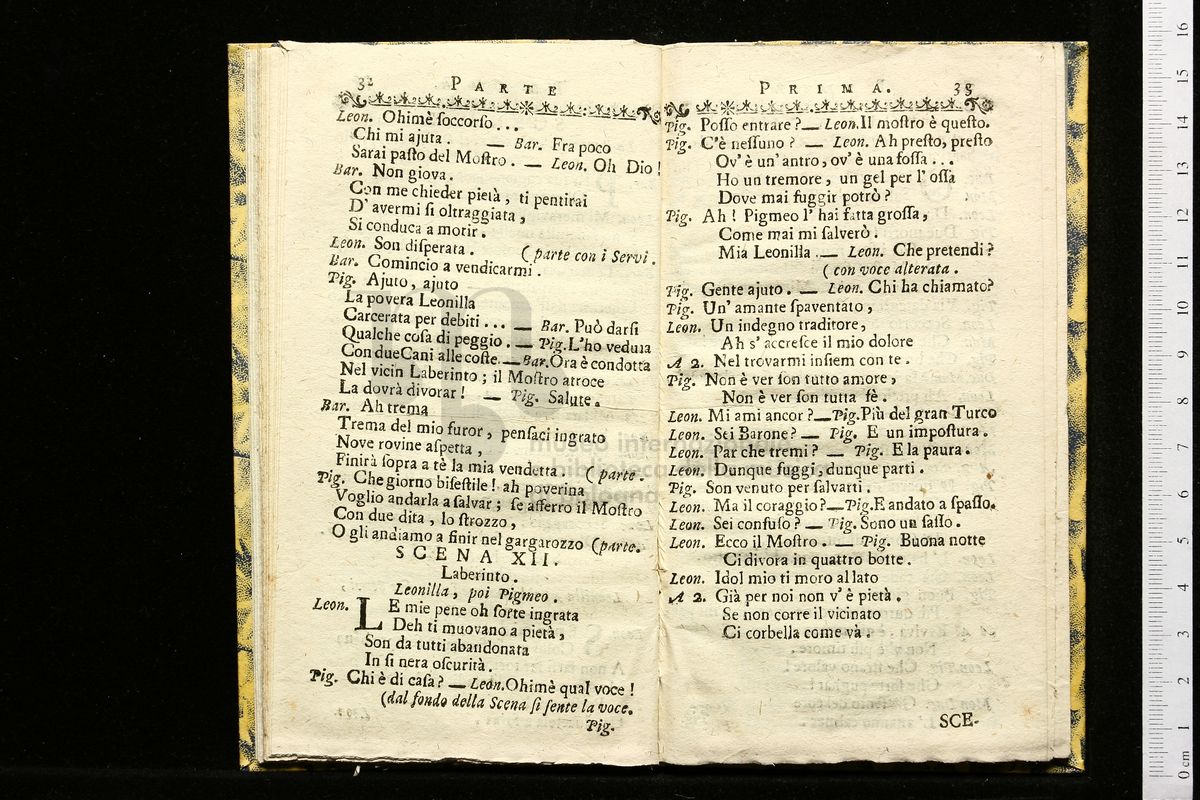 32 PARTE
Leon. Ohimè ſoccorſo...
Chi mi ajuta. — Bar. Fra poco
Sarai paſto del Moſtro. — Leon. Oh Dio!
Bar. Non giova.
Con me chieder pietà, ti pentirai
D' avermi ſi oltraggiata,
Si conduca a morir.
Leon. Son diſperata. (parte con i Servi.
Bar. Comincio a vendicarmi.
Pig. Ajuto, ajuto
La povera Leonilla
Carcerata per debiti... — Bar. Può darſi
Qualche coſa di peggio. — Pig. L'ho veduta
Con due Cani alle coſte. — Bar. Ora è condotta
Nel vicin Laberinto; il Moſtro atroce
La dovrà divorar! — Pig. Salute.
Bar. Ah trema
Trema del mio furor, penſaci ingrato
Nove rovine aſpetta,
Finirà ſopra a tè la mia vendetta. (parte.
Pig. Che giorno biſeſtile! ah poverina
Voglio andarla a ſalvar; ſe afferro il Moſtro
Con due dita, lo ſtrozzo,
O gli andiamo a finir nel gargarozzo (parte.
SCENA XII.
Laberinto.
Leonilla, poi Pigmeo.
Leon. LE mie pene oh ſorte ingrata
Deh ti muovano a pietà,
Son da tutti abandonata
In ſi nera oſcurità.
Pig. Chi è di caſa? — Leon. Ohimè qual voce!
(dal fondo della Scena ſi ſente la voce.
Pig.
PRIMA. 33
Pig. Poſſo entrare? — Leon. Il moſtro è queſto.
Pig. C'è neſſuno? — Leon. Ah preſto, preſto
Ov' è un' antro, ov' è una foſſa...
Ho un tremore, un gel per l' oſſa
Dove mai fuggir potrò?
Pig. Ah! Pigmeo l' hai fatta groſſa,
Come mai mi ſalverò.
Mia Leonilla. — Leon. Che pretendi?
(con voce alterata.
Pig. Gente ajuto. — Leon. Chi ha chiamato?
Pig. Un' amante ſpaventato,
Leon. Un indegno traditore,
Ah s' accreſce il mio dolore
A 2. Nel trovarmi inſiem con te.
Pig. Non è ver ſon tutto amore,
Non è ver ſon tutta fè.
Leon. Mi ami ancor? — Pig. Più del gran Turco
Leon. Sei Barone? — Pig. E un impoſtura.
Leon. Par che tremi? — Pig. E la paura.
Leon. Dunque fuggi, dunque parti.
Pig. Son venuto per ſalvarti.
Leon. Ma il coraggio? — Pig. E andato a ſpaſſo.
Leon. Sei confuſo? — Pig. Sono un ſaſſo.
Leon. Ecco il Moſtro. — Pig. Buona notte
Ci divora in quattro botte.
Leon. Idol mio ti moro allato
A 2. Già per noi non v' è pietà.
Se non corre il vicinato
Ci corbella come và.
SCE-
museo internazionale
biblioteca della
bologna
0 cm 1 2 3 4 5 6 7 8 9 10 11 12 13 14 15 16